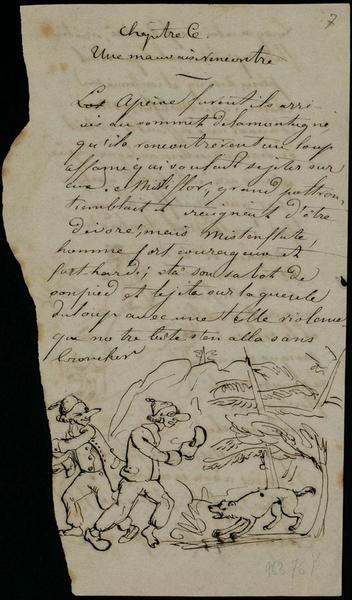 7
Chapitre 6e
Une mauvaise rencontre
Les Apeine furent ils arri
vés au sommet de la montagne
qu'ils rencontrèrent un loup
affamé qui voulait se jeter sur
eux; et Mistiflor, grand poltron,
tremblait et craignait d'être
dévoré, mais Mistenflute,
homme fort courageux et
fort hardi; ôta son sabot de
son pied et le jeta sur la gueule
du loup avec une telle violence
que notre bête s'en alla sans